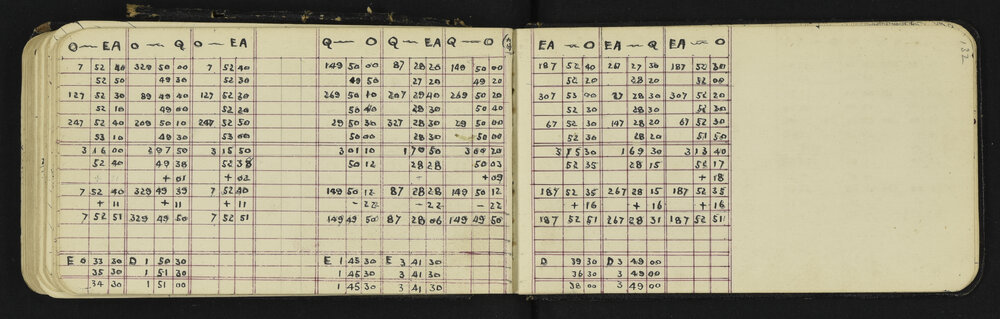 O — EA O — Q O — EA Q — O Q — EA Q — O EA — O EA — Q EA — O
7 52 40 329 50 00 7 52 40 149 50 00 87 28 20 149 50 00 187 52 40 267 27 30 187 52 30
52 50 49 30 52 30 49 50 27 20 49 20 52 20 28 20 52 00
127 52 30 89 49 40 127 52 30 269 50 10 207 29 40 269 50 20 307 53 00 27 28 30 307 52 20
52 10 49 00 52 20 50 40 28 30 50 40 52 30 28 30 52 30
247 52 40 209 50 10 247 52 50 29 50 30 327 28 30 29 50 00 67 52 30 147 28 20 67 52 30
53 10 49 30 53 00 50 00 28 30 50 00 52 30 28 20 51 50
3 16 00 2 97 50 3 15 50 3 01 10 1 70 50 3 00 20 3 15 30 1 69 30 3 13 40
52 40 49 38 52 38 50 12 28 28 50 03 52 35 28 15 52 17
+ 01 + 02 + 09 + 18
7 52 40 329 49 39 7 52 40 149 50 12 87 28 28 149 50 12 187 52 35 267 28 15 187 52 35
+ 11 + 11 + 11 - 22 - 22 - 22 + 16 + 16 + 16
7 52 51 329 49 50 7 52 51 149 49 50 87 28 06 149 49 50 187 52 51 267 28 31 187 52 51
E 0 33 30 D 1 50 30 E 1 45 30 E 3 41 30 D 39 30 D 3 49 00
35 30 1 51 30 1 45 30 3 41 30 36 30 3 49 00
34 30 1 51 00 1 45 30 3 41 30 38 00 3 49 00
32